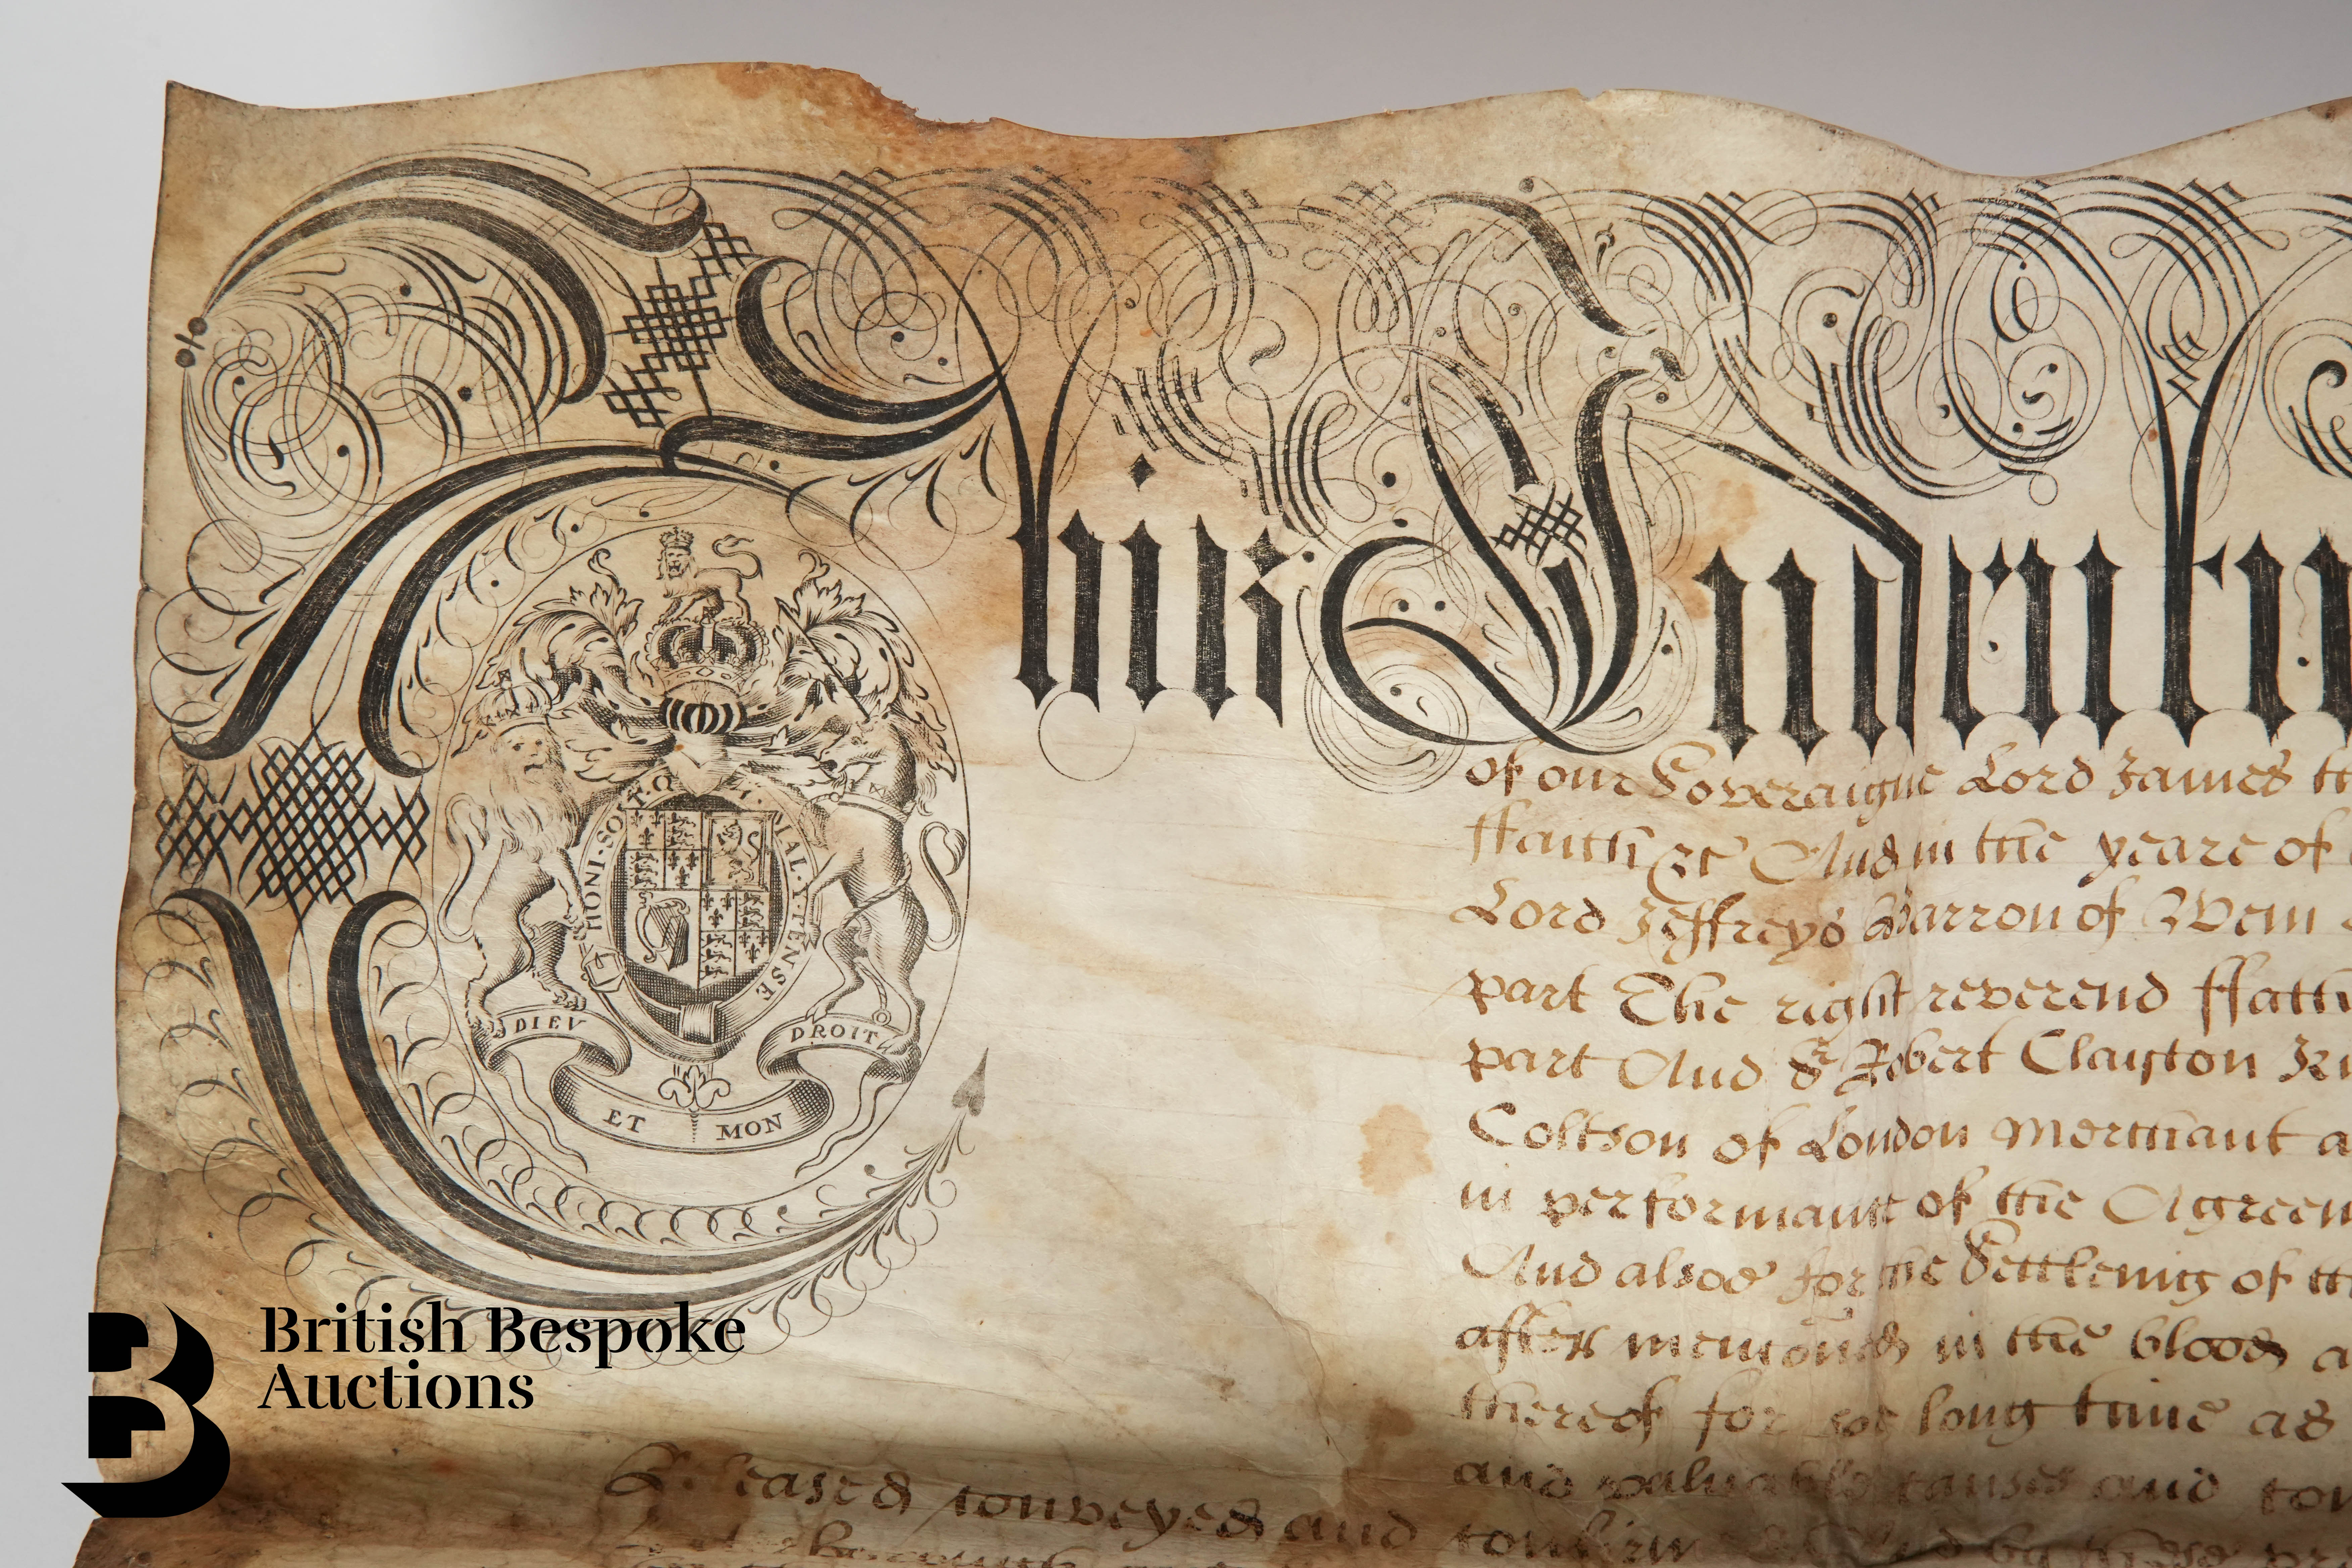 This Indentu
HONI·SOIT·Q MAL·Y·PENSE
DIEV ET MON DROIT
of our Soveraigne Lord James t
ffaith &c And in the yeare of
Lord Jeffreys Barron of Wem
part The right reverend ffath
part And Sr Robert Clayton K
Coltson of London Merchant a
in performance of the Agreem
And alsoe for the Settleing of t
after menconed in the blood a
thereof for soe long time as
and valuable causes and con
British Bespoke
Auctions
conveyed and